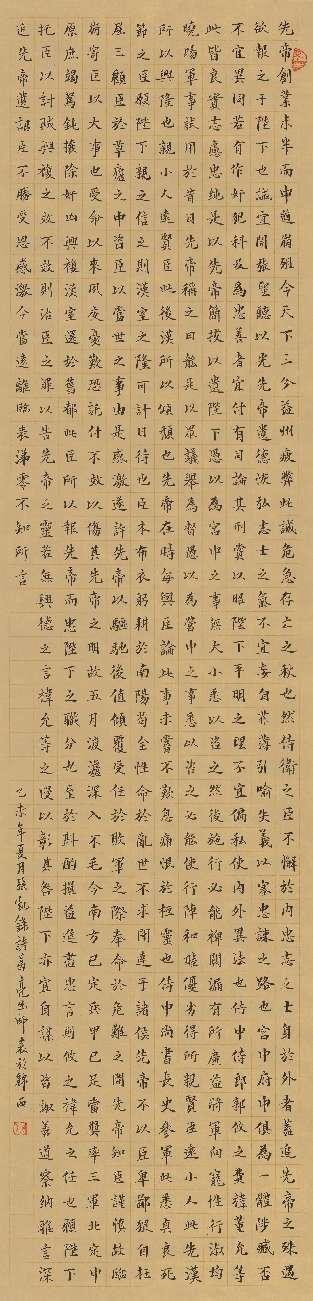 先帝創業未半而中道崩殂今天下三分益州疲弊此誠危急存亡之秋也然侍衛之臣不懈於內忠志之士身於外者蓋追先帝之殊遇
欲報之于陛下也誠宜開張聖聽以光先帝遺德恢弘志士之氣不宜妄自菲薄引喻失義以塞忠諫之路也宮中府中俱為一體陟臧否
不宜異同若有作奸犯科及為忠善者宜付有司論其刑賞以昭陛下平明之理不宜偏私使內外異法也侍中侍郎郭攸之費禕董允等
此皆良實志慮忠純是以先帝簡拔以遺陛下愚以為宮中之事無大小悉以咨之然後施行必能裨補闕漏有所廣益將軍向寵性行淑均
曉暢軍事試用於昔日先帝稱之曰能是以眾議舉為督愚以為營中之事悉以咨之必能使行陣和睦優劣得所親賢臣遠小人此先漢
所以興隆也親小人遠賢臣此後漢所以傾頹也先帝在時每與臣論此事未嘗不歎息痛恨於桓靈也侍中尚書長史參軍此悉貞良死
節之臣願陛下親之信之則漢室之隆可計日待也臣本布衣躬耕於南陽苟全性命於亂世不求聞達于諸侯先帝不以臣卑鄙猥自枉
屈三顧臣於草廬之中咨臣以當世之事由是感激遂許先帝以驅馳後值傾覆受任於敗軍之際奉命於危難之間先帝知臣謹慎故臨
崩寄臣以大事也受命以來夙夜憂歎恐託付不效以傷其先帝之明故五月渡瀘深入不毛今南方已定兵甲已足當獎率三軍北定中
原庶竭駑鈍攘除奸凶興復漢室還於舊都此臣所以報先帝而忠陛下之職分也至於斟酌損益進盡忠言則攸之禕允之任也願陛下
托臣以討賊興復之效不效則治臣之罪以告先帝之靈若無興德之言禕允等之慢以彰其咎陛下亦宜自謀以咨諏善道察納雅言深
追先帝遺詔臣不勝受恩感激今當遠離臨表涕零不知所言
乙未年夏月張凱錄諸葛亮出師表於錦西